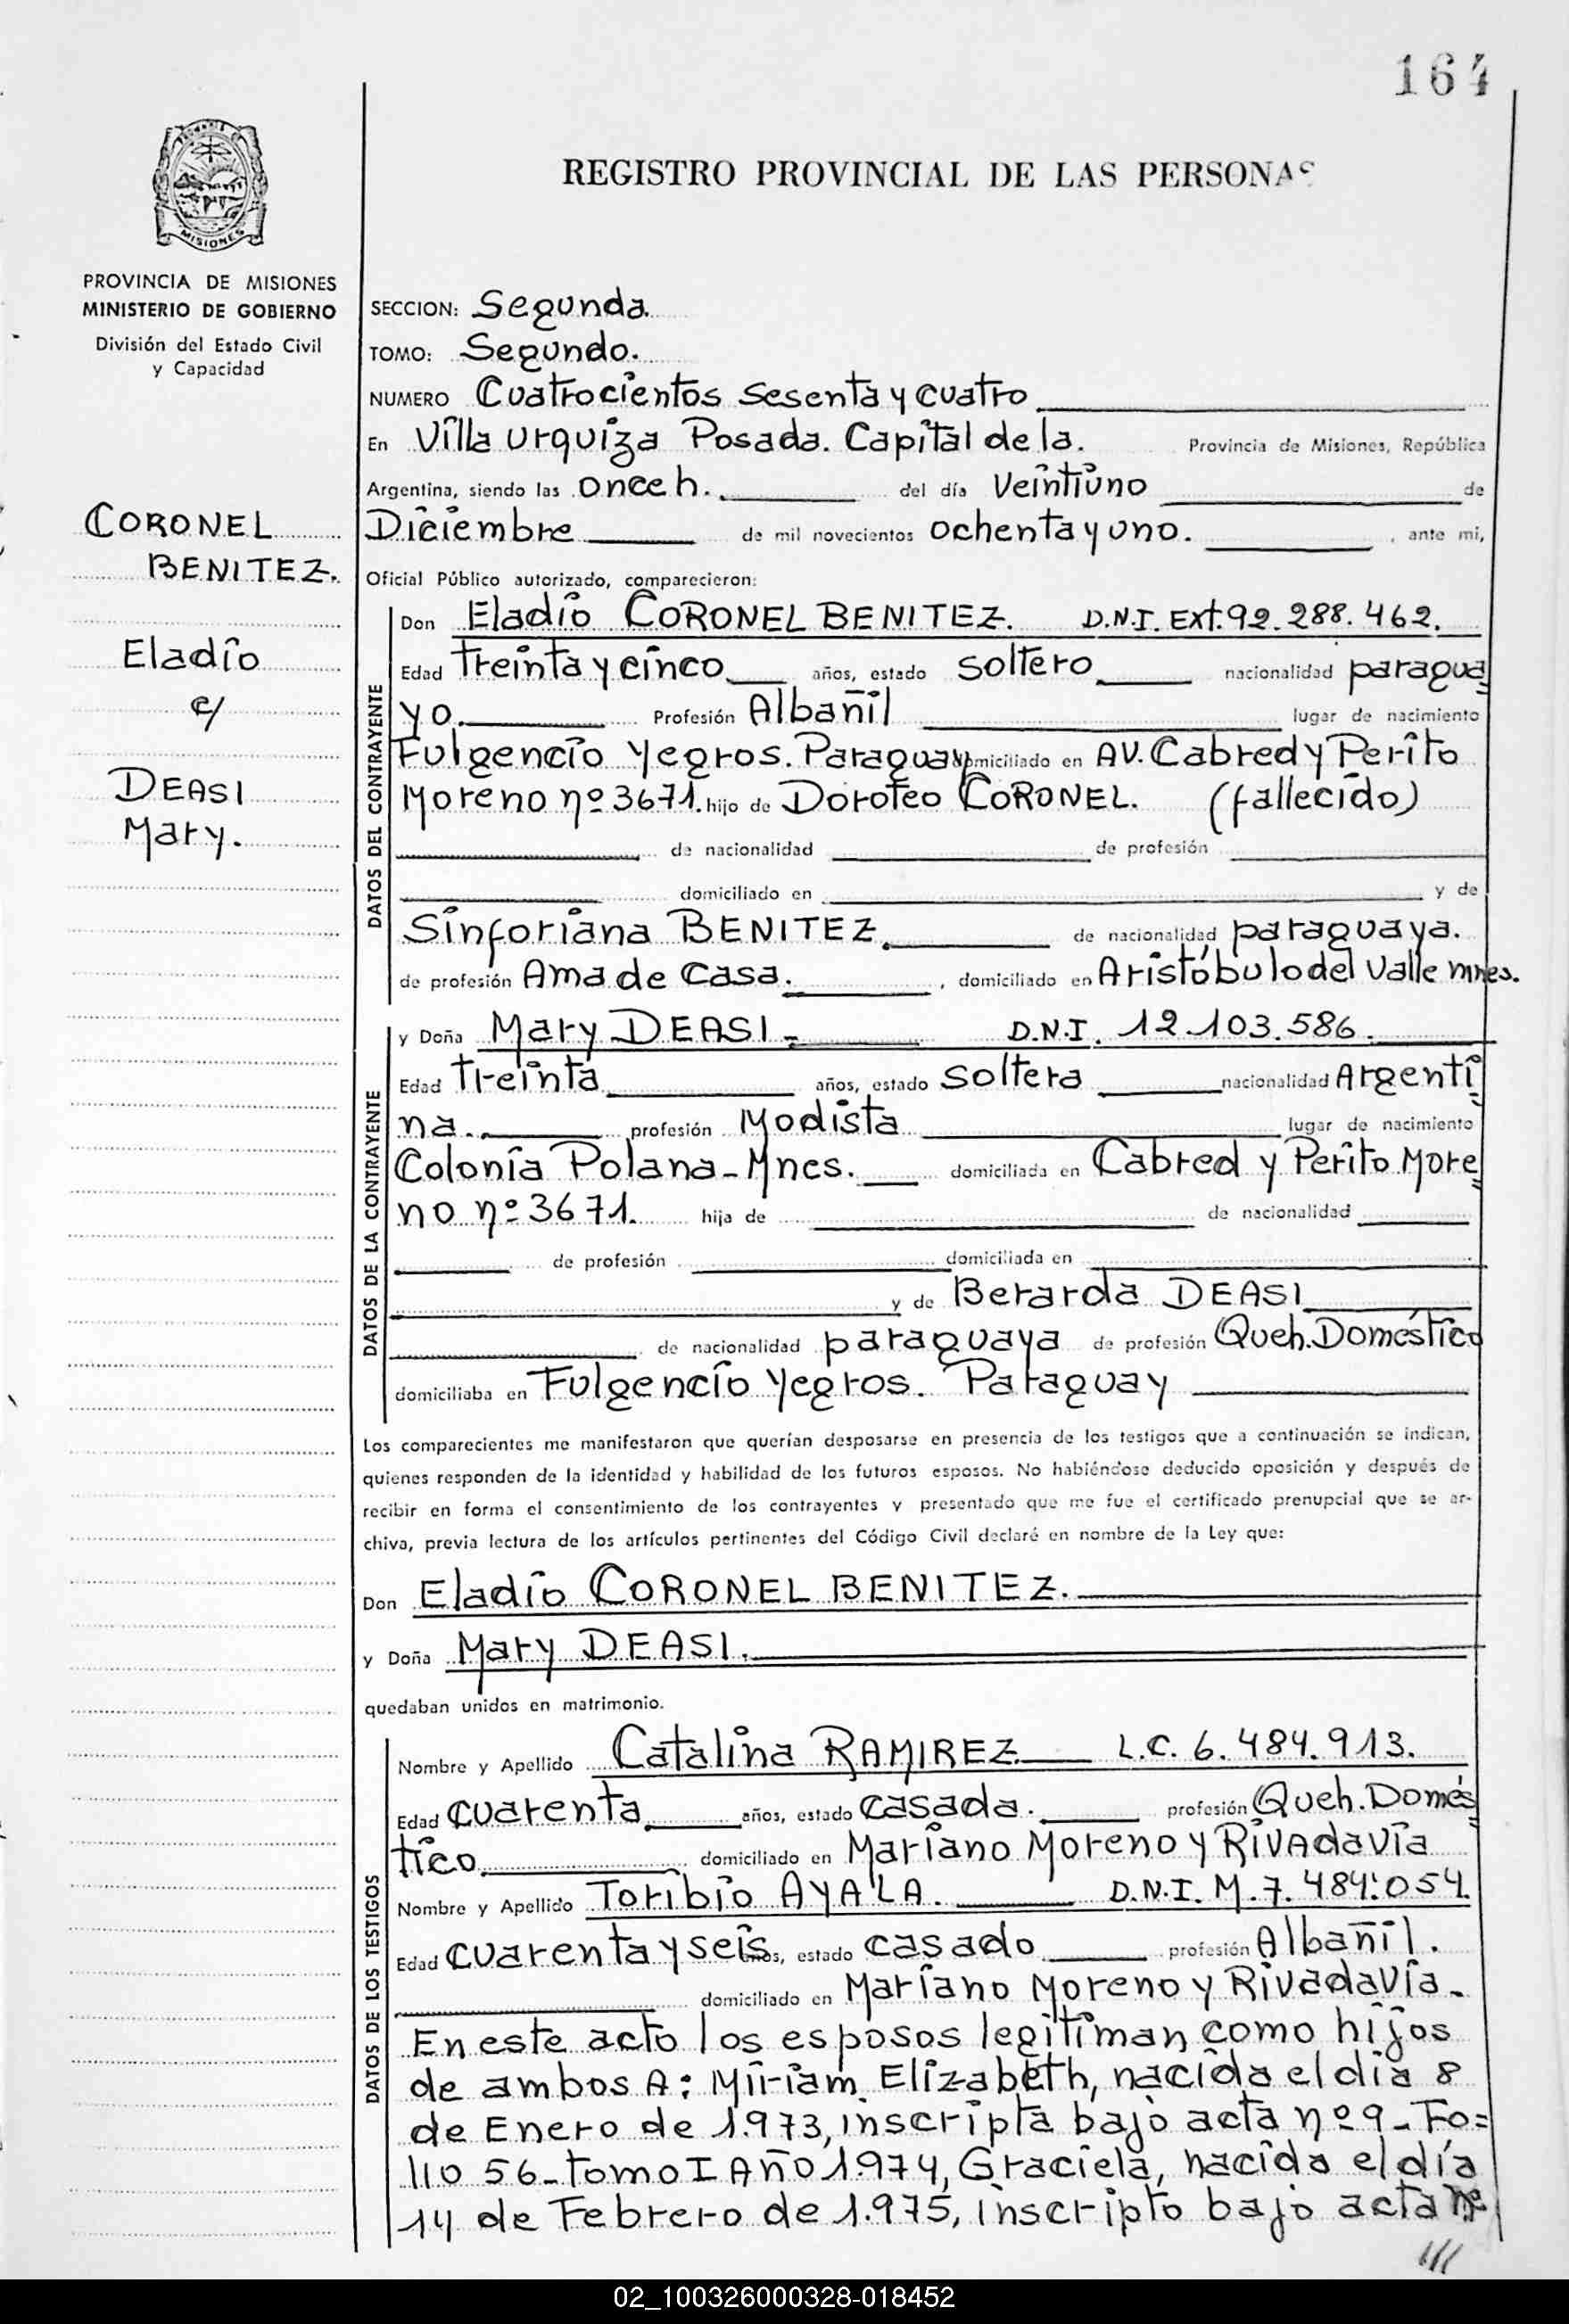 164
MISIONES
REGISTRO PROVINCIAL DE LAS PERSONAS
PROVINCIA DE MISIONES
MINISTERIO DE GOBIERNO
División del Estado Civil
y Capacidad
CORONEL
BENITEZ.
Eladio
c/
DEASI
Mary.
SECCION: Segunda
TOMO: Segundo.
NUMERO Cuatrocientos sesenta y cuatro
En Villa Urquiza Posada. Capital de la. Provincia de Misiones, República
Argentina, siendo las once h. del día Veintiuno de
Diciembre de mil novecientos ochenta y uno. , ante mi,
Oficial Público autorizado, comparecieron:
DATOS DEL CONTRAYENTE
Don Eladio CORONEL BENITEZ. D.N.I. Ext. 92.288.462.
Edad treinta y cinco años, estado soltero nacionalidad paragua
yo. Profesión Albañil lugar de nacimiento
Fulgencio Yegros. Paraguay domiciliado en AV. Cabred y Perito
Moreno nº 3671. hijo de Doroteo CORONEL. (fallecido)
de nacionalidad de profesión
domiciliado en y de
Sinforiana BENITEZ de nacionalidad paraguaya.
de profesión Ama de Casa. , domiciliado en Aristóbulo del Valle mnes.
DATOS DE LA CONTRAYENTE
y Doña Mary DEASI D.N.I. 12.103.586.
Edad treinta años, estado soltera nacionalidad Argenti
na. profesión Modista lugar de nacimiento
Colonia Polana-Mnes. domiciliada en Cabred y Perito More
no nº 3671. hija de de nacionalidad
de profesión domiciliada en
y de Berarda DEASI
de nacionalidad paraguaya de profesión Queh. Doméstico
domiciliaba en Fulgencio Yegros. Paraguay
Los comparecientes me manifestaron que querían desposarse en presencia de los testigos que a continuación se indican,
quienes responden de la identidad y habilidad de los futuros esposos. No habiéndose deducido oposición y después de
recibir en forma el consentimiento de los contrayentes y presentado que me fue el certificado prenupcial que se ar-
chiva, previa lectura de los artículos pertinentes del Código Civil declaré en nombre de la Ley que:
Don Eladio CORONEL BENITEZ.
y Doña Mary DEASI.
quedaban unidos en matrimonio.
DATOS DE LOS TESTIGOS
Nombre y Apellido Catalina RAMIREZ L.C. 6.484.913.
Edad cuarenta años, estado casada. profesión Queh. Domés
tico domiciliado en Mariano Moreno y Rivadavia
Nombre y Apellido Toribio AYALA. D.N.I. M. 7.484.054.
Edad cuarenta y seis años, estado casado profesión Albañil.
domiciliado en Mariano Moreno y Rivadavia.
En este acto los esposos legitiman como hijos
de ambos A: Miriam Elizabeth, nacida el dia 8
de Enero de 1.973, inscripta bajo acta nº 9-Fo=
lio 56-tomo I Año 1.974, Graciela, nacida el día
14 de Febrero de 1.975, inscripto bajo acta nº
///
02_100326000328-018452